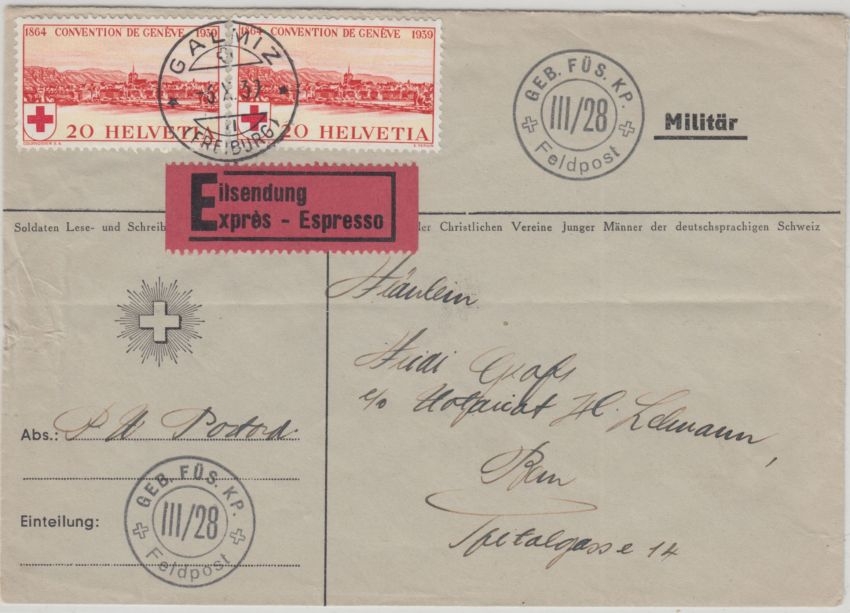 1864 CONVENTION DE GENÈVE 1939
20 HELVETIA
COURVOISIER S.A.
1864 CONVENTION DE GENÈVE 1939
20 HELVETIA
GALMIZ
(FREIBURG)
GEB. FÜS. KP.
III/28
Feldpost
Militär
Eilsendung
Exprès - Espresso
Soldaten Lese- und Schreib
der Christlichen Vereine Junger Männer der deutschsprachigen Schweiz
Fräulein
Heidi Graf
c/o Notariat H. Lehmann,
Bern
Spitalgasse 14
Abs.:
GEB. FÜS. KP.
III/28
Feldpost
Einteilung: